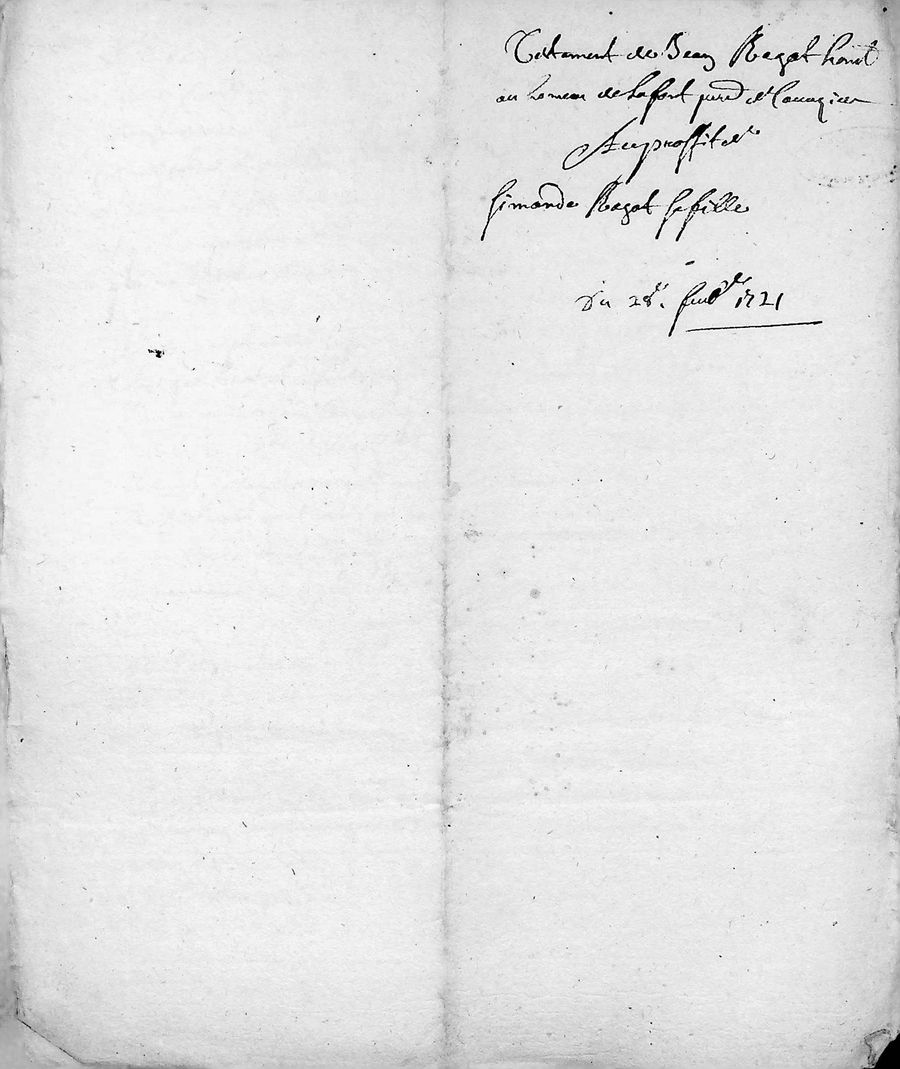 Testament de Jean Ragot habit
au hameau de Lafont pard de
Au proffit de
Simonde Ragot sa fille
Du 28e 1721